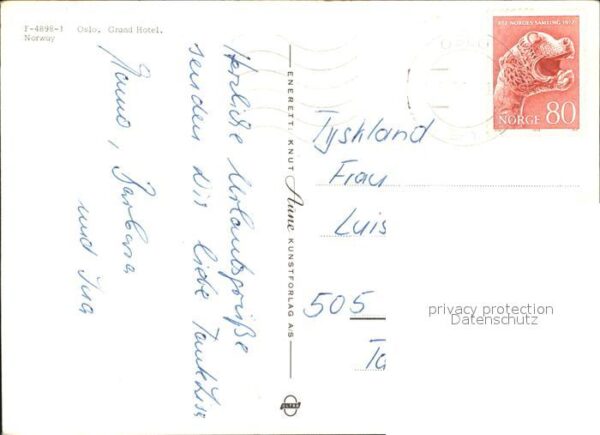 F-4898-1 Oslo. Grand Hotel.
Norway
Herzliche Urlaubsgrüße
senden Dir liebe Tante Lise
Hanno, Barbara
und Ina
ENERETT: KNUT Aune KUNSTFORLAG A/S
ULTRA
872 NORGES SAMLING 1972
NORGE 80
Tyskland
Frau
Luis
505
Ta
privacy protection
Datenschutz